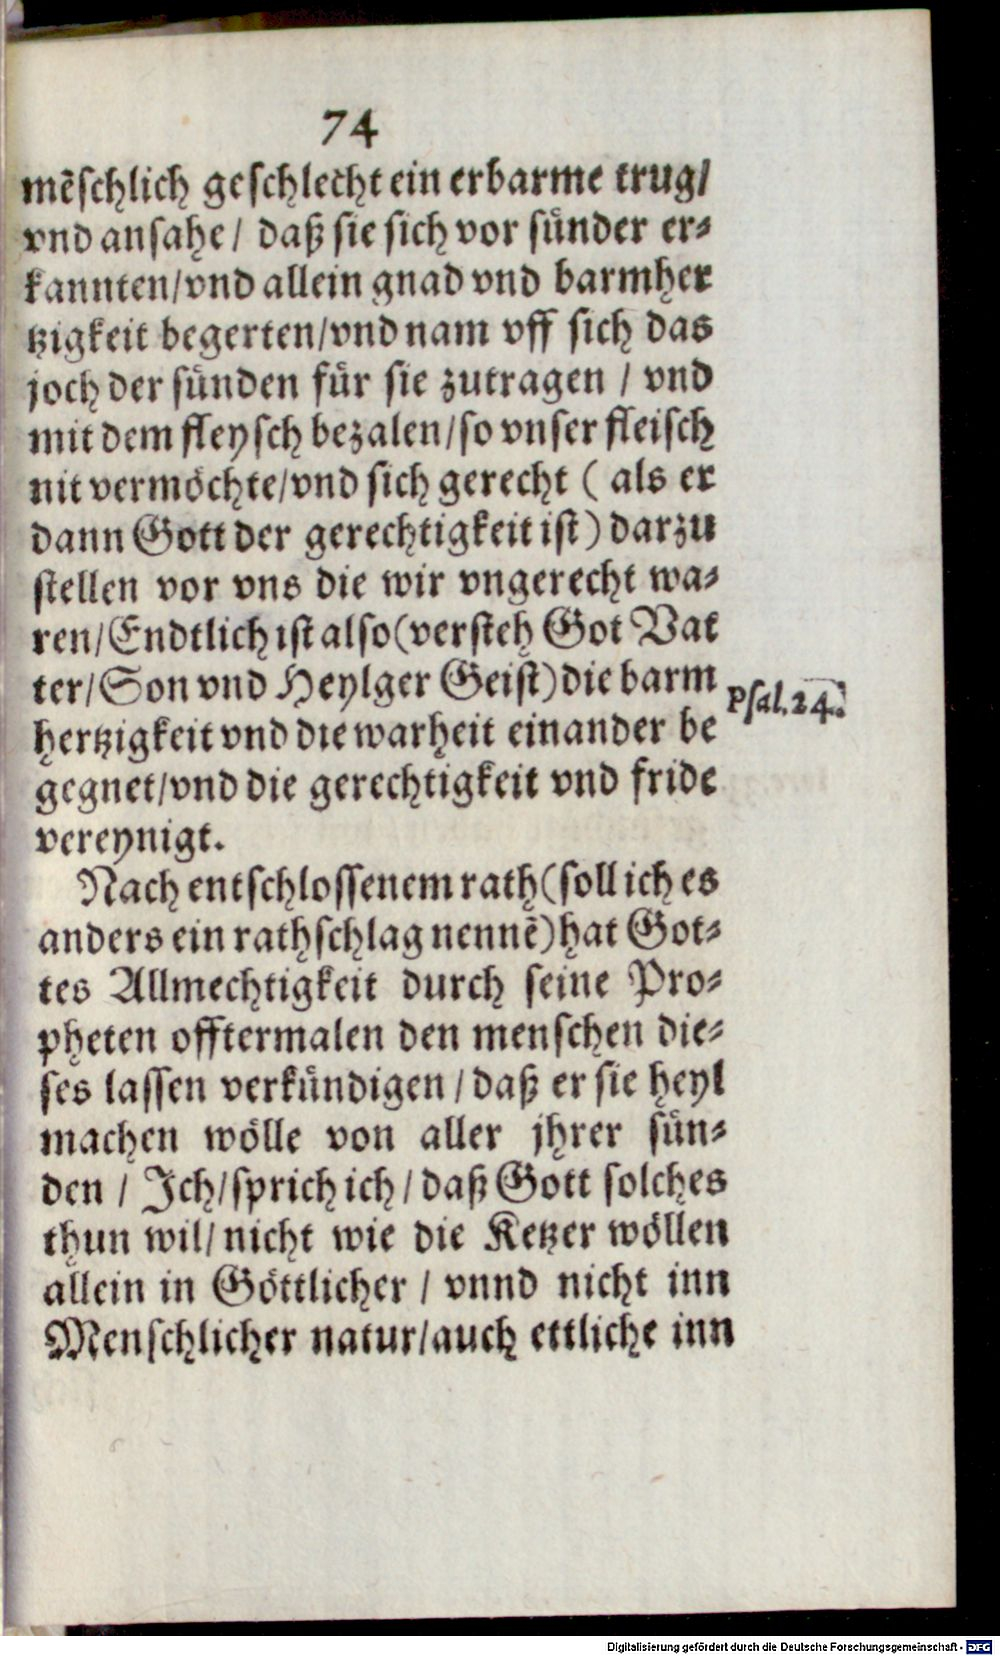 74
mẽschlich geschlecht ein erbarme trug/
vnd ansahe / daß sie sich vor sünder er-
kannten/vnd allein gnad vnd barmher
tzigkeit begerten/vnd nam vff sich das
joch der sünden für sie zutragen / vnd
mit dem fleysch bezalen/so vnser fleisch
nit vermöchte/vnd sich gerecht ( als er
dann Gott der gerechtigkeit ist) darzu
stellen vor vns die wir vngerecht wa-
ren/Endtlich ist also(versteh Got Vat
ter/Son vnd Heylger Geist)die barm
Psal.24.
hertzigkeit vnd die warheit einander be
gegnet/vnd die gerechtigkeit vnd fride
vereynigt.
Nach entschlossenem rath(soll ich es
anders ein rathschlag nennẽ)hat Got-
tes Allmechtigkeit durch seine Pro-
pheten offtermalen den menschen die-
ses lassen verkündigen / daß er sie heyl
machen wölle von aller jhrer sün-
den / Jch/sprich ich/daß Gott solches
thun wil/nicht wie die Ketzer wöllen
allein in Göttlicher / vnnd nicht inn
Menschlicher natur/auch ettliche inn
Digitalisierung gefördert durch die Deutsche Forschungsgemeinschaft - DFG